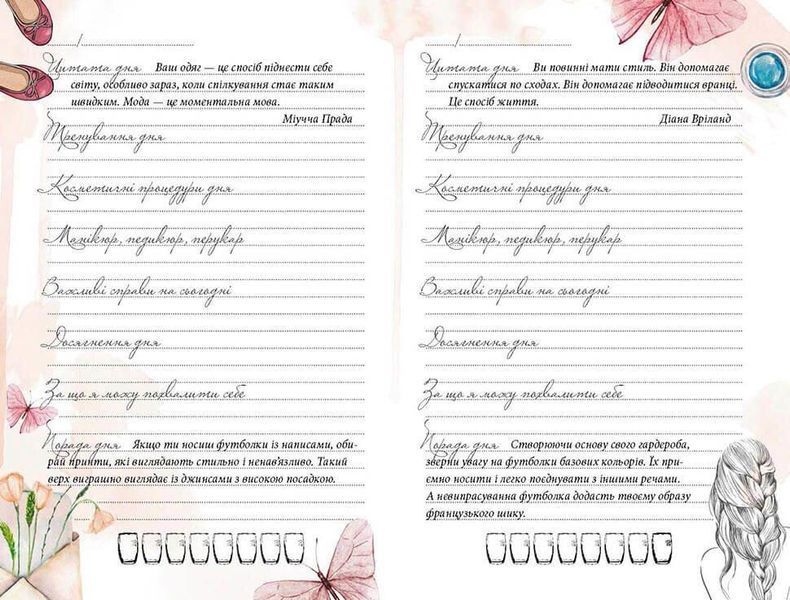 ......./.............................
Цитата дня Ваш одяг — це спосіб піднести себе
світу, особливо зараз, коли спілкування стає таким
швидким. Мода — це моментальна мова.
Міучча Прада
Тренування дня
Косметичні процедури дня
Манікюр, педикюр, перукар
Важливі справи на сьогодні
Досягнення дня
За що я можу похвалити себе
Порада дня Якщо ти носиш футболки із написами, оби-
рай принти, які виглядають стильно і ненав'язливо. Такий
верх виграшно виглядає із джинсами з високою посадкою.
......./.............................
Цитата дня Ви повинні мати стиль. Він допомагає
спускатися по сходах. Він допомагає підводитися вранці.
Це спосіб життя.
Діана Вріланд
Тренування дня
Косметичні процедури дня
Манікюр, педикюр, перукар
Важливі справи на сьогодні
Досягнення дня
За що я можу похвалити себе
Порада дня Створюючи основу свого гардероба,
зверни увагу на футболки базових кольорів. Їх при-
ємно носити і легко поєднувати з іншими речами.
А невипрасувана футболка додасть твоєму образу
французького шику.